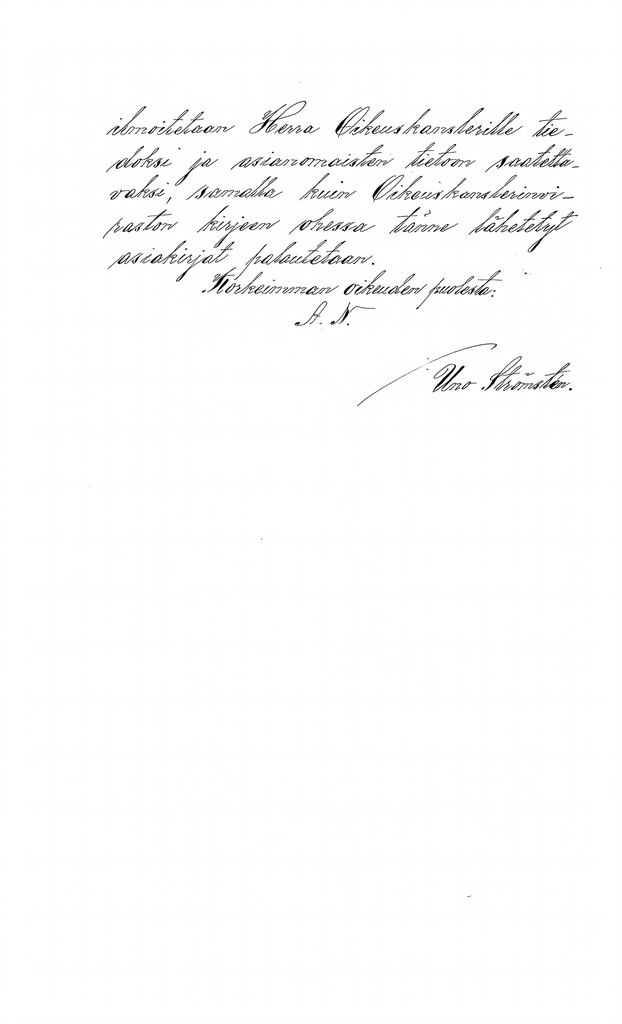 ilmoitetaan Herra Oikeuskanslerille tie-
doksi ja asianomaisten tietoon saatetta-
vaksi, samalla kuin Oikeuskanslerinvi-
raston kirjeen ohessa tänne lähetetyt
asiakirjat palautetaan.
Korkeimman oikeuden puolesta:
A. N.
Uno Strömstén.